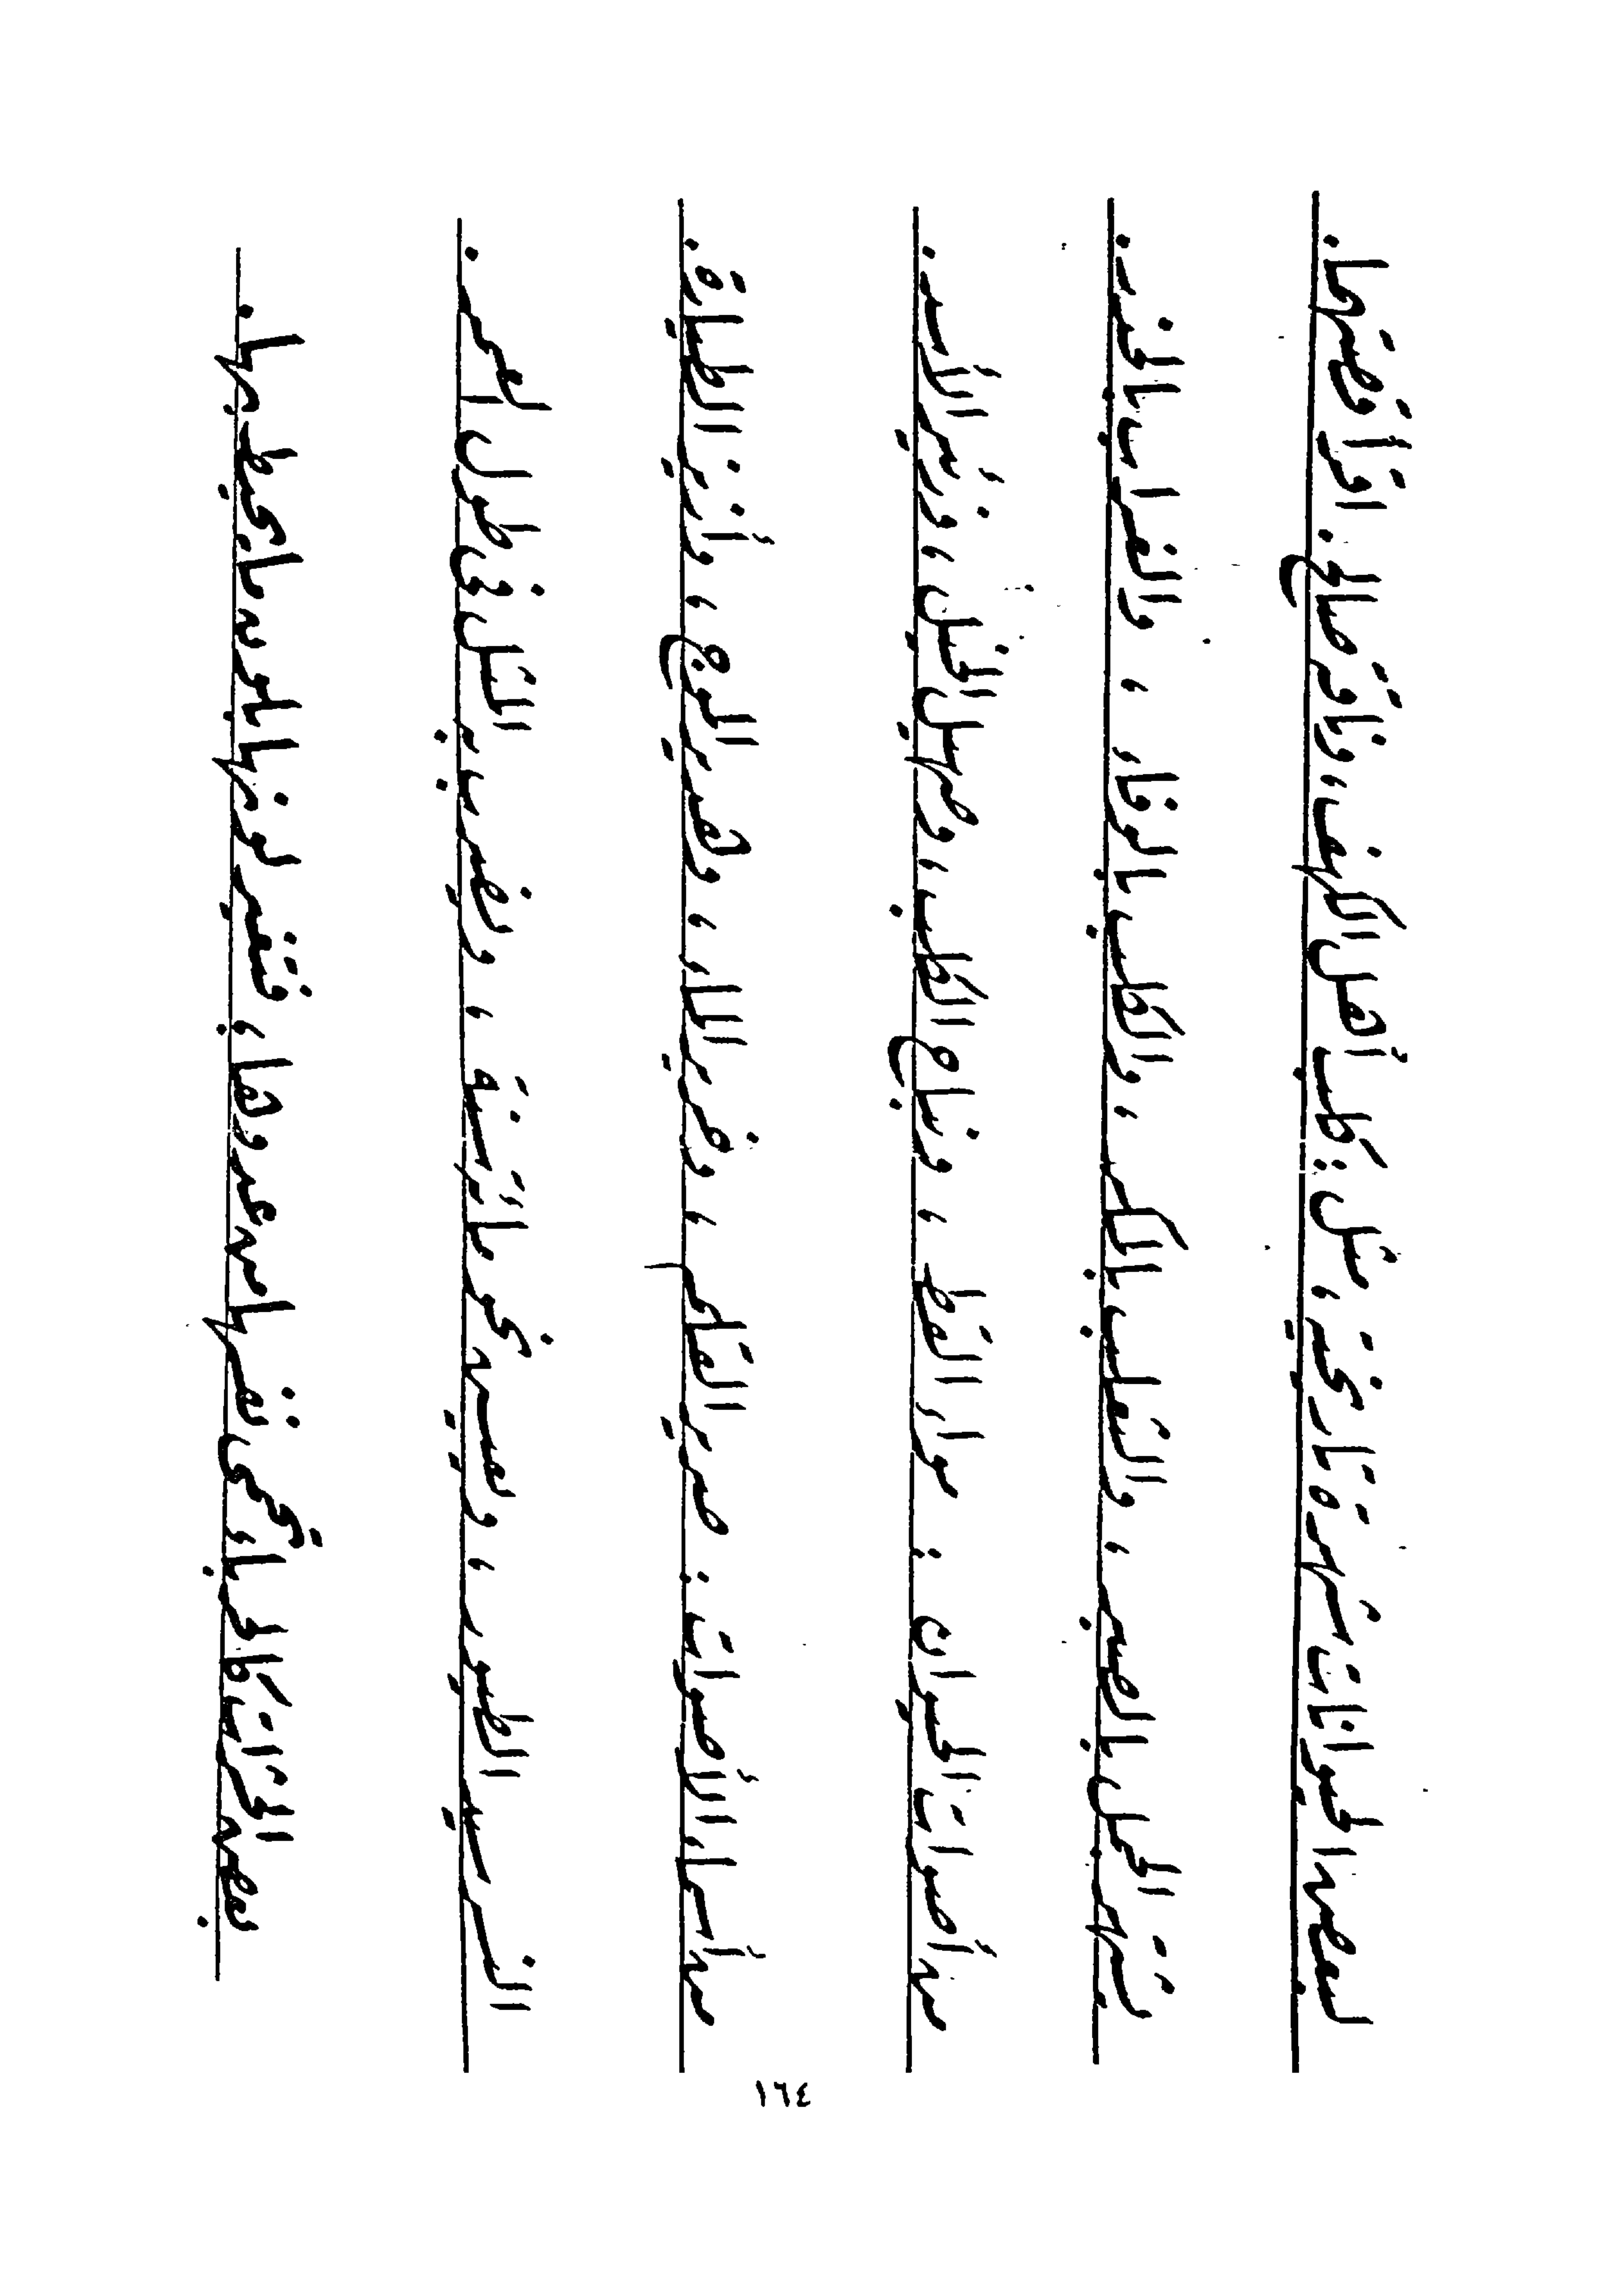 لبعض الحيوانات شهرة تاريخية، مثل: كلب أهل الكهف، وناقة صالح. اقرأ قصتهما.
يشتهر الجمل بالصبر، والثعلب بالمكر، والكلب بالوفاء، والغراب بالحذر.
من أصوات الحيوان: مواء القط، ونباح الكلب، وصهيل الخيل، وزئير الأسد.
من أسماء الأصوات: صرير القلم، وخرير الماء، وهدير الموج، وأزيز الطيارة.
النسر سيد الطيور، ويعيش نحو مائة سنة، ويضرب به المثل فى طول العمر.
بعض الحشرات كالحرباء تحمى نفسها من عدوها، فتغير لونها بلون ما يحيط بها.
١٦٤